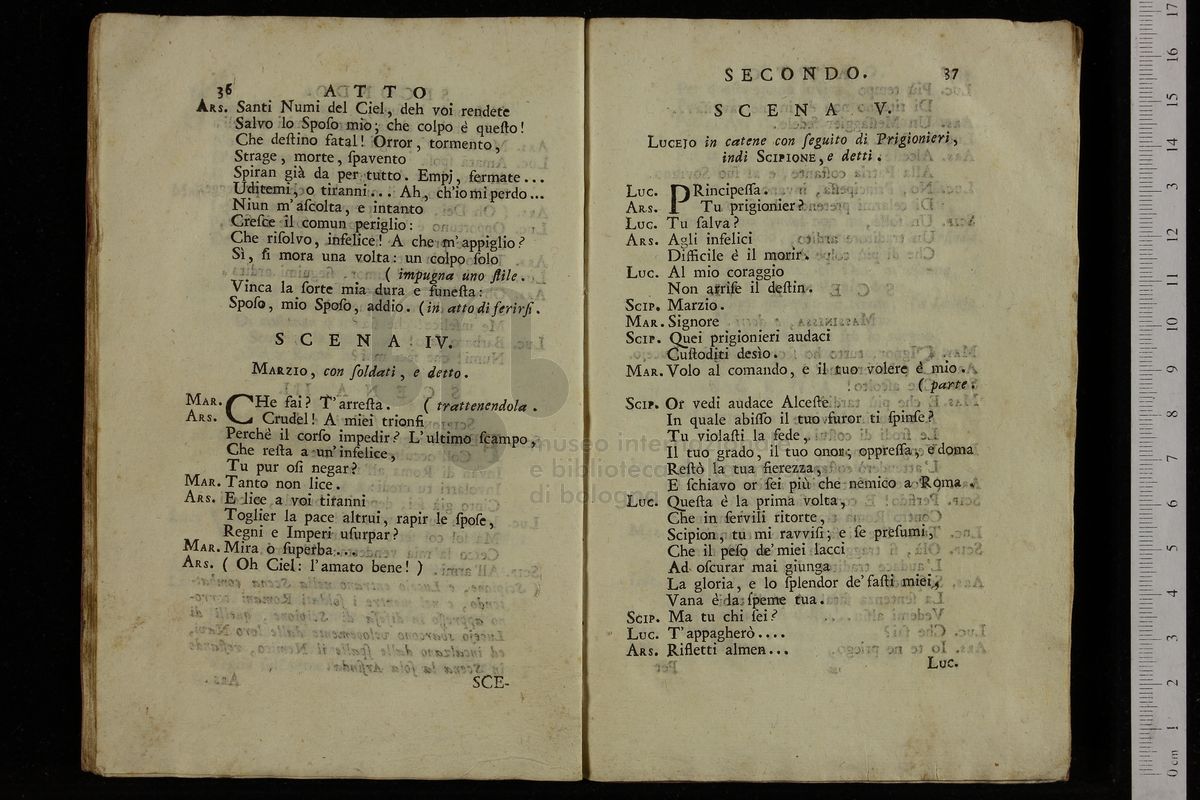 36 ATTO
ARS. Santi Numi del Ciel, deh voi rendete
Salvo lo Spoſo mio; che colpo è queſto!
Che deſtino fatal! Orror, tormento,
Strage, morte, ſpavento
Spiran già da per tutto. Empj, fermate...
Uditemi, o tiranni... Ah, ch'io mi perdo...
Niun m'aſcolta, e intanto
Creſce il comun periglio:
Che riſolvo, infelice! A che m'appiglio?
Sì, ſi mora una volta: un colpo ſolo
( impugna uno ſtile.
Vinca la ſorte mia dura e funeſta:
Spoſo, mio Spoſo, addio. (in atto di ferirſi.
SCENA IV.
MARZIO, con ſoldati, e detto.
MAR. CHe fai? T'arreſta. ( trattenendola.
ARS. Crudel! A miei trionfi
Perchè il corſo impedir? L'ultimo ſcampo,
Che reſta a un'infelice,
Tu pur oſi negar?
MAR. Tanto non lice.
ARS. E lice a voi tiranni
Toglier la pace altrui, rapir le ſpoſe,
Regni e Imperi uſurpar?
MAR. Mira ò ſuperba...
ARS. ( Oh Ciel: l'amato bene! )
SCE-
SECONDO. 37
SCENA V.
LUCEJO in catene con ſeguito di Prigionieri,
indi SCIPIONE, e detti.
LUC. PRincipeſſa.
ARS. Tu prigionier?
LUC. Tu ſalva?
ARS. Agli infelici
Difficile è il morir.
LUC. Al mio coraggio
Non arriſe il deſtin.
SCIP. Marzio.
MAR. Signore
SCIP. Quei prigionieri audaci
Cuſtoditi desìo.
MAR. Volo al comando, e il tuo volere è mio.
( parte.
SCIP. Or vedi audace Alceſte
In quale abiſſo il tuo furor ti ſpinſe?
Tu violaſti la fede,
Il tuo grado, il tuo onor; oppreſſa, e doma
Reſtò la tua fierezza,
E ſchiavo or ſei più che nemico a Roma.
LUC. Queſta è la prima volta,
Che in ſervili ritorte,
Scipion, tu mi ravviſi; e ſe preſumi,
Che il peſo de' miei lacci
Ad oſcurar mai giunga
La gloria, e lo ſplendor de' faſti miei,
Vana è la ſpeme tua.
SCIP. Ma tu chi ſei?
LUC. T'appagherò....
ARS. Rifletti almen...
LUC.
museo internazionale
e biblioteca
di bologna